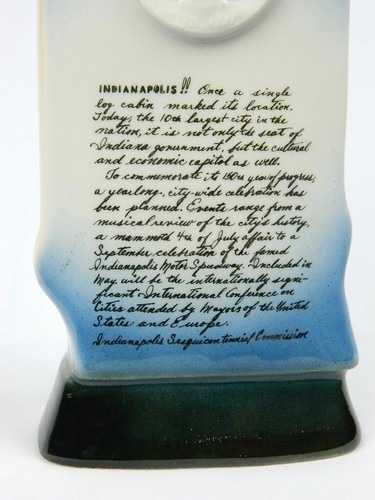 INDIANAPOLIS!! Once a single
log cabin marked its location.
Today, the 10th largest city in the
nation, it is not only the seat of
Indiana government, but the cultural
and economic capitol as well.
To commemorate its 150th year of progress,
a yearlong, city-wide celebration has
been planned. Events range from a
musical review of the city's history,
a mammoth 4th of July affair to a
September celebration of the famed
Indianapolis Motor Speedway. Included in
May will be the internationally signi-
ficant International Conference on
Cities attended by Mayors of the United
States and Europe.
Indianapolis Sesquicentennial Commission